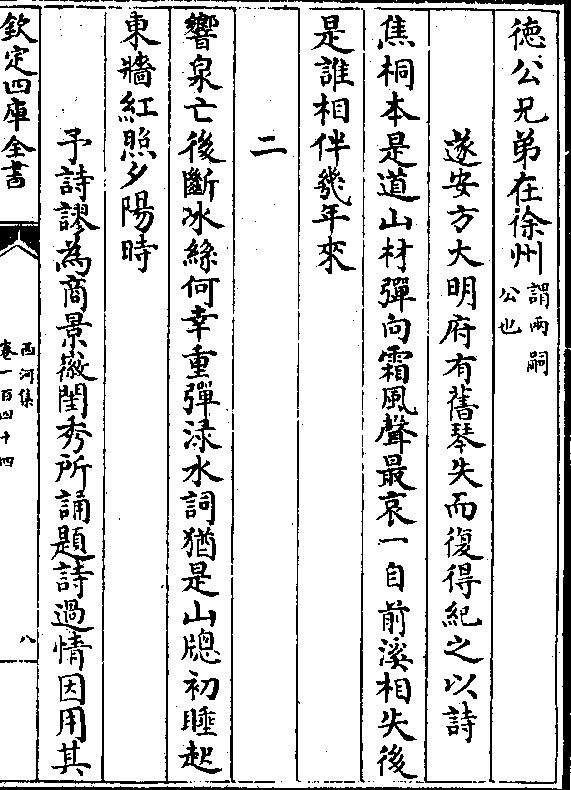 徳公兄弟在徐州謂兩嗣公也
遂安方大明府有舊琴失而復得紀之以詩
焦桐本是道山材彈向霜風聲最哀一自前溪相失後
是誰相伴幾年來
二
響泉亡後斷冰絲何幸重彈淥水詞猶是山牕初睡起
東牆紅照夕陽時
予詩謬為商景徽閨秀所誦題詩過情因用其
欽定四庫全書
西河集
卷一百四十四
八